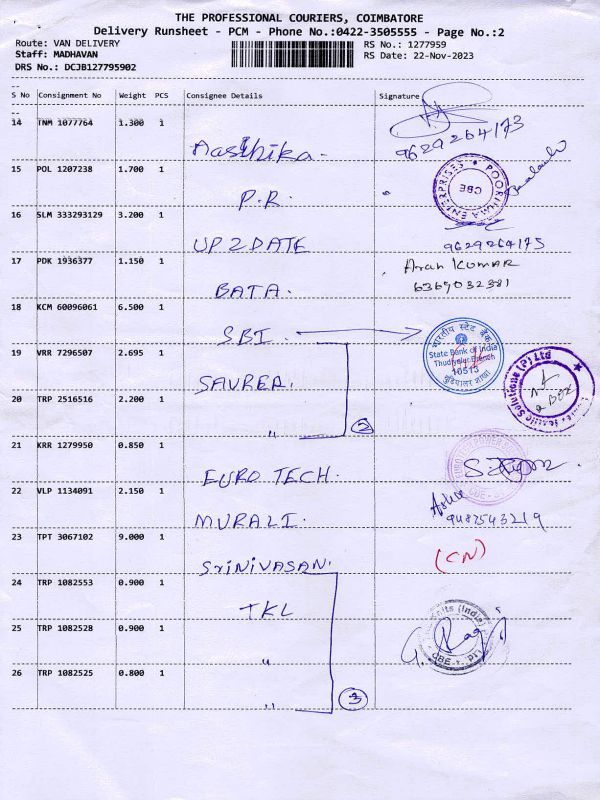 THE PROFESSIONAL COURIERS, COIMBATORE
Delivery Runsheet - PCM - Phone No.:0422-3505555 - Page No.:2
Route: VAN DELIVERY
RS No.: 1277959
Staff: MADHAVAN
RS Date: 22-Nov-2023
DRS No.: DCJB127795902
S No Consignment No Weight PCS Consignee Details Signature
14 TNM 1077764 1.300 1
Aasthika. 9629264173
15 POL 1207238 1.700 1
P.R. POORNIMA ENTERPRISES CBE
16 SLM 333293129 3.200 1
UP2DATE 9629264175
17 PDK 1936377 1.150 1 Arun KUMAR
BATA. 6369032381
18 KCM 60096061 6.500 1
SBI. भारतीय स्टेट बैंक State Bank of India Thudiyalur Branch 10513 तुडियालर शाखा
19 VRR 7296507 2.695 1
SAVREA. Solutions (P) Ltd
20 TRP 2516516 2.200 1 BOX
" 2
21 KRR 1279950 0.850 1
EURO TECH. CBE
22 VLP 1134091 2.150 1
MURALI. 9487543219
23 TPT 3067102 9.000 1
SRINIVASAN. (CN)
24 TRP 1082553 0.900 1
TKL
25 TRP 1082528 0.900 1
" (India) CBE
26 TRP 1082525 0.800 1
" 3